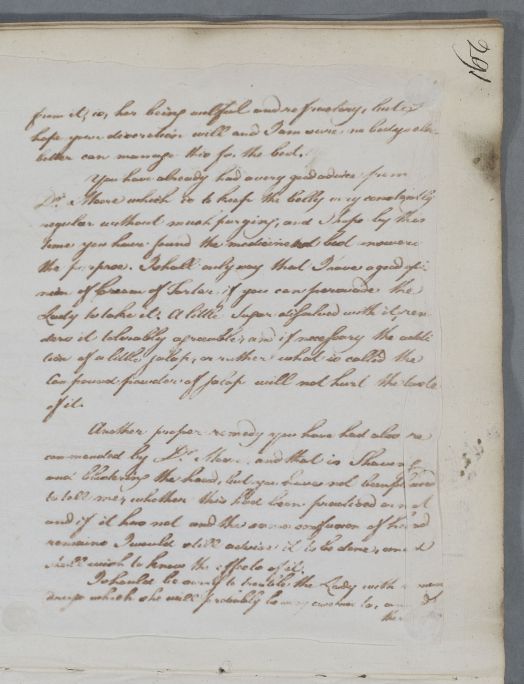 162
from it, is, her being wilful and refractory, but I
hope your discretion will and I am sure no body else
better can manage this for the best.
You have already had a very good advice from
Dr. Moore which is to keep the belly very constantly
regular without much purging, and I hope by this
time you have found the medicine that best answers
the purpose. I shall only say that I have a good opi-
nion of Cream of Tartar if you can persuade the
Lady to take it; A little Sugar dissolved with it, ren-
ders it tolerably agreeable, and if necessary the addi
tion of a little jalap, or rather what is called the
Compound powder of jalap will not hurt the taste
of it.
Another proper remedy you have had also re
commended by Dr. Moore, and that is Shaving
and blistering the head, but you have not been pleased
to tell me, whether this had been practised or not
and if it has not and the same confusion of head
remains I would still advise it to be done, and
shall wish to know the effects of it.
I should be sorry to trouble the Lady with
drugs which she will probably be very averse to, and of
the